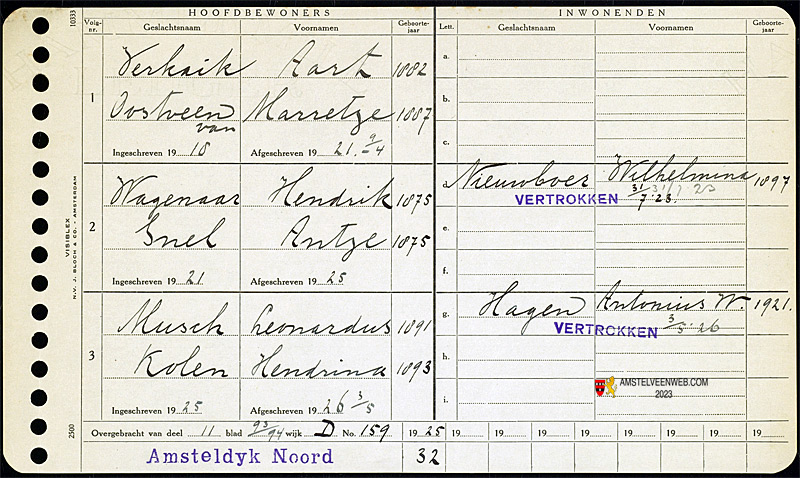 HOOFDBEWONERS
INWONENDEN
Volg-nr.
Geslachtsnaam
Voornamen
Geboorte-jaar
Lett.
Geslachtsnaam
Voornamen
Geboorte-jaar
10333
1
Verkaik Aart 1882
Oostveen van Marretje 1887
Ingeschreven 19 18 Afgeschreven 19 21. 9/4
a.
b.
c.
2
Wagenaar Hendrik 1875
Snel Antje 1875
Ingeschreven 19 21 Afgeschreven 19 25
d. Nieuwboer Wilhelmina 1897
VERTROKKEN 31/7 23. 31/7 23
e.
f.
3
Musch Leonardus 1891
Kolen Hendrina 1893
Ingeschreven 19 25 Afgeschreven 19 26 3/5
g. Hagen Antonius W. 1921.
VERTROKKEN 3/5 26
h.
i.
AMSTELVEENWEB.COM
2023
VISIBLEX
N.V. J. BLOCH & CO. - AMSTERDAM
2500
Overgebracht van deel 11 blad 93/94 wijk D No. 159 19 25 19 19 19 19 19 19 19 19
Amsteldyk Noord 32